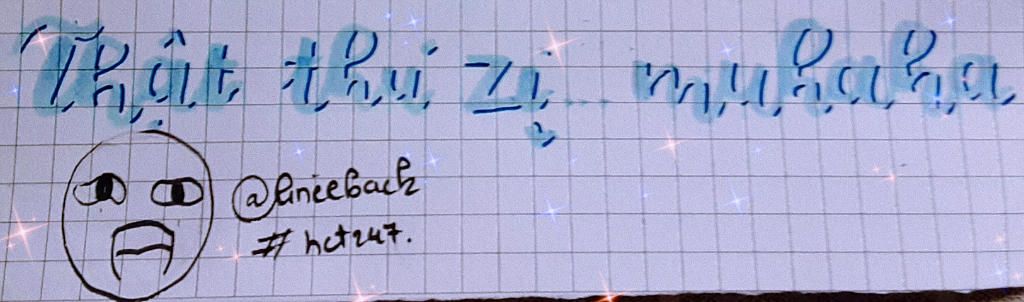 Thật thú zị... muhaha
@kniceback
#hct247.